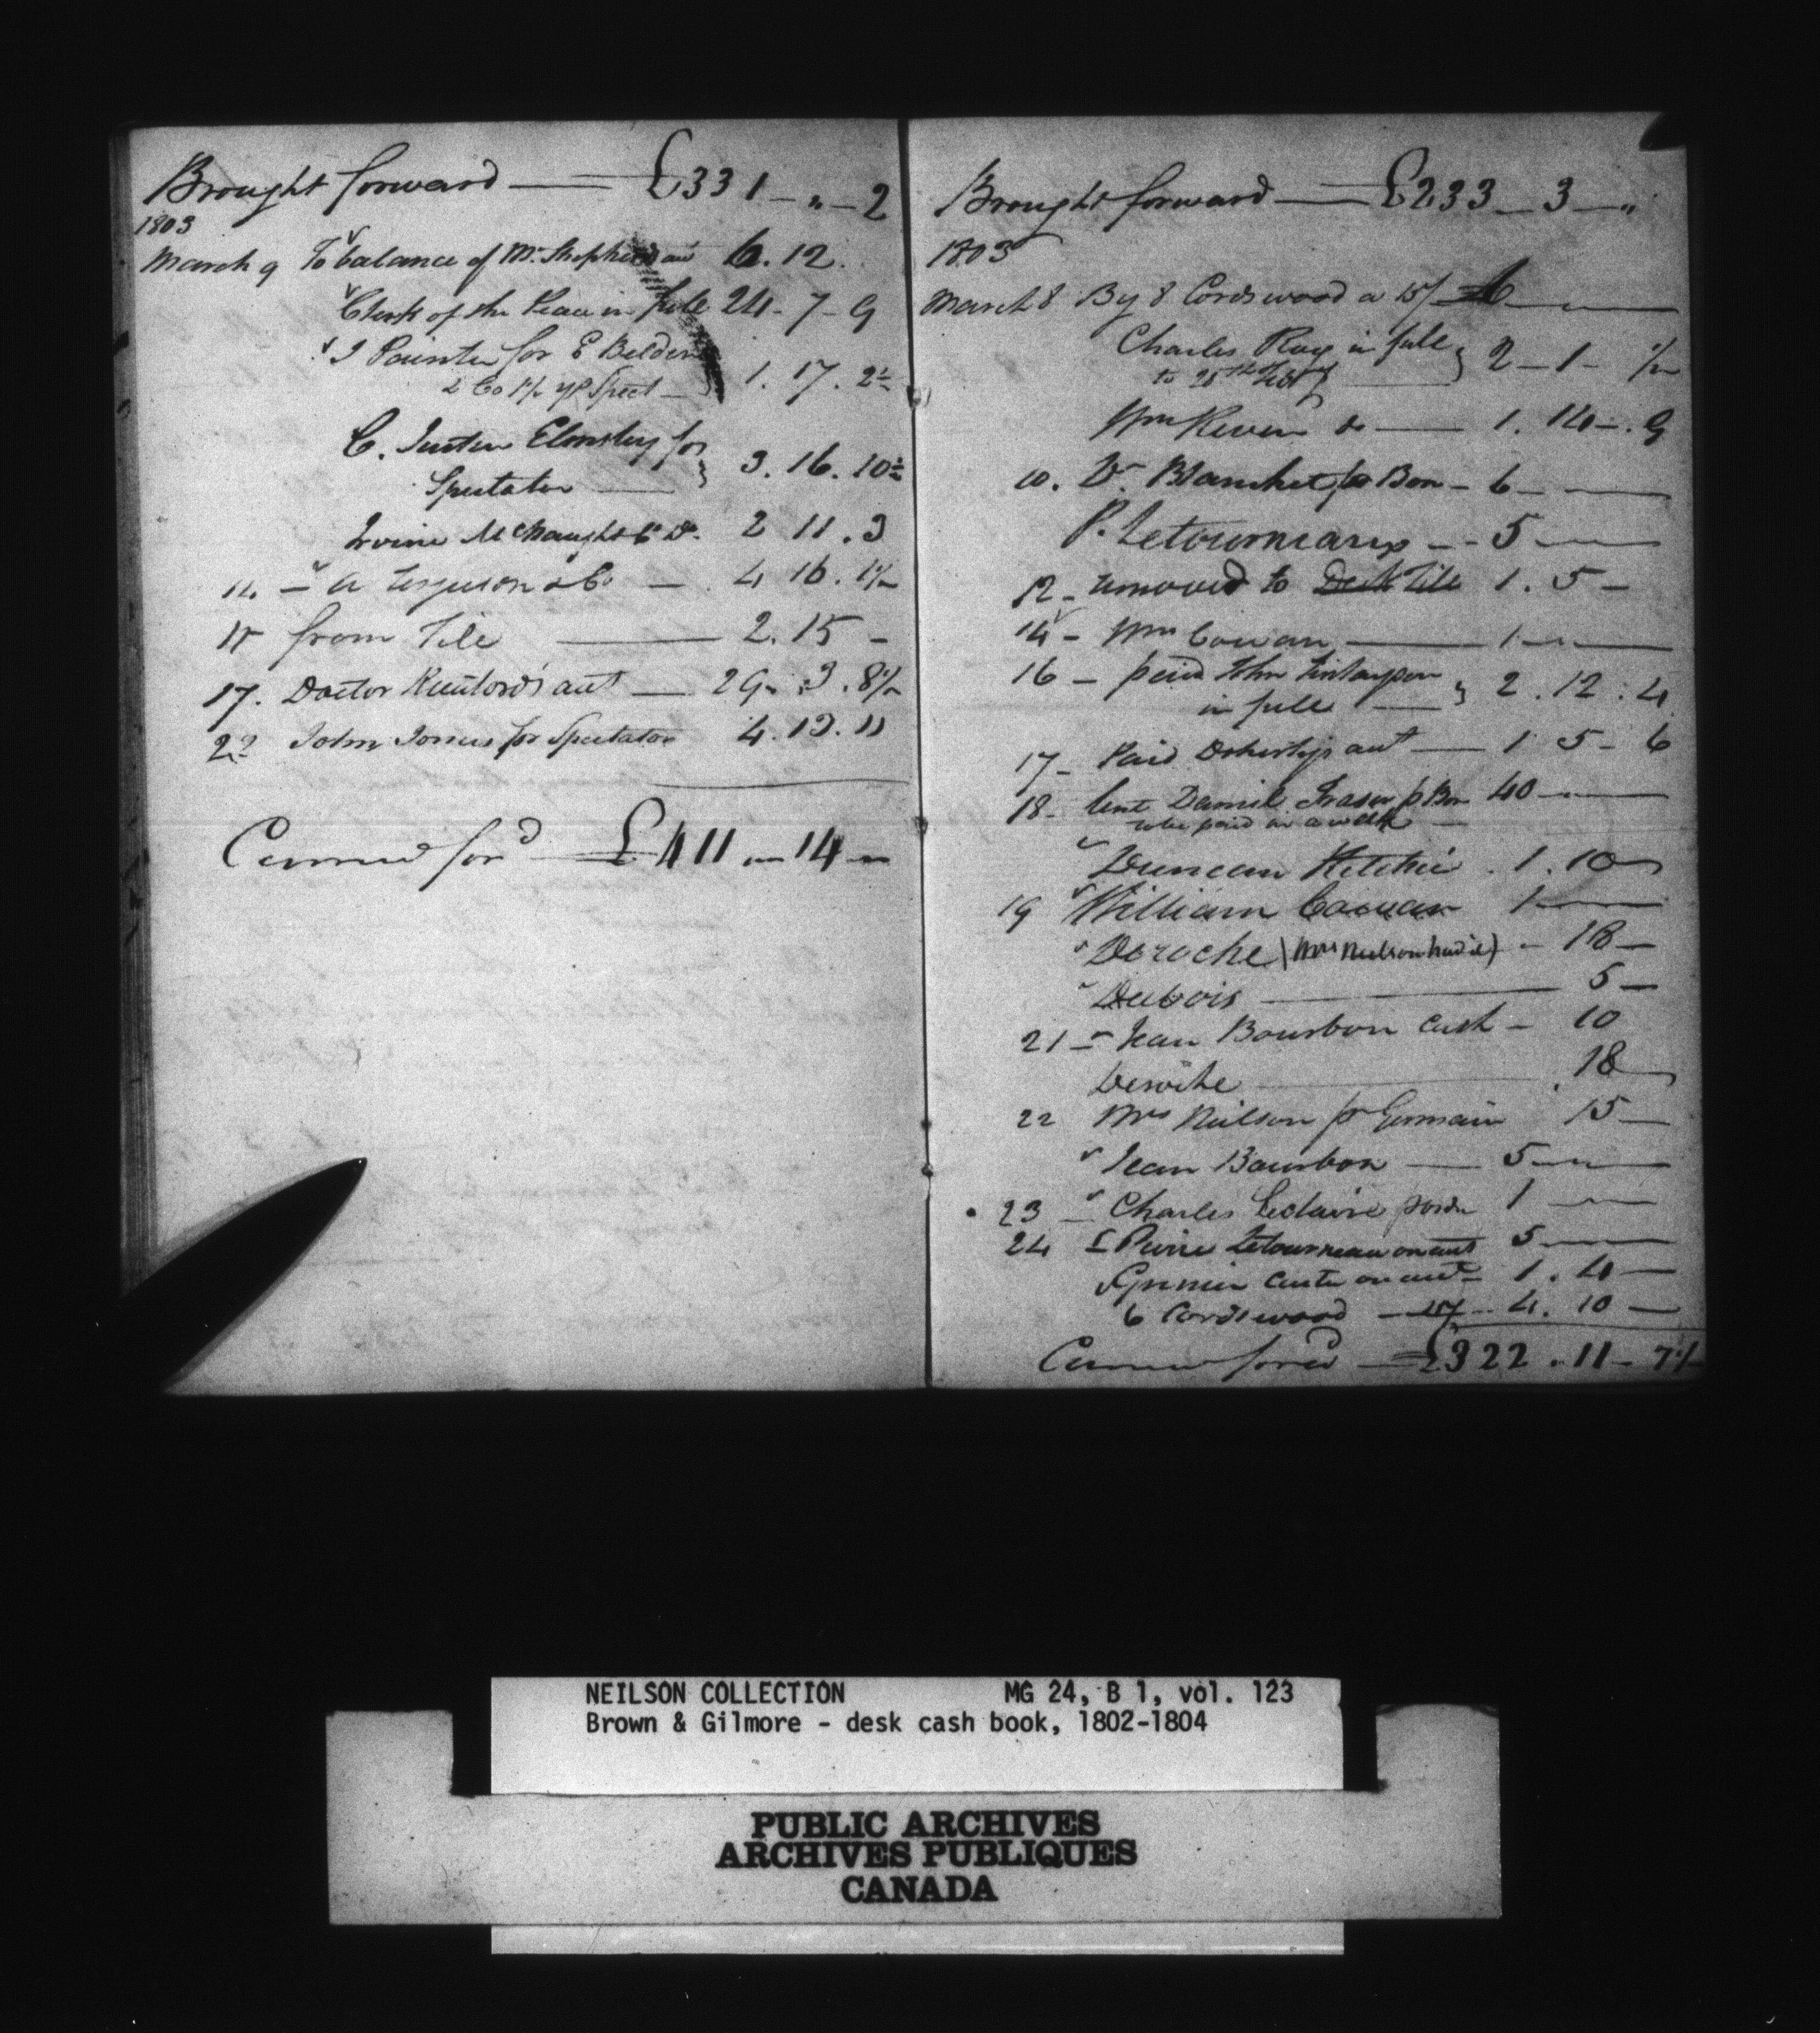 Brought forward — £331 - „ - 2
1803
March 9 To balance of Mr. Shepherd's 6. 12.
Clerk of the Peace in full 24 - 7 - 9
J Painter for E Belden
& Co 1½ yr Spect - 1. 17. 2½
C. Justice Elmsley for
Spectator — 3. 16. 10½
Irvine McNaught & Co. Do. 2 11. 3
14 - A Ferguson & Co — 4 16. 1½
15 from Tile — 2. 15 -
17. Doctor acct — 29. 3. 8½
22 John Jones for Spectator 4. 13. 11
Carried for'd — £411 „ 14 „
Brought forward — £233 - 3 - „
1803
March 8 By 8 Cords wood a 15/ 6 - „ -
Charles Roy in full
to 28th Feby — 2 - 1 - ½
Wm Keven do — 1. 14 -. 9
10. Dr. Blanchet pr Bon - 6 -
P. Letourneaux - - 5 —
12 - removed to Desk Tile 1. 5 -
14 - Wm Cowan — 1 - „ -
16 - paid John Finlayson
in full — 2. 12. 4
17 - Paid Doherty's acct — 1 5 - 6
18 - lent Daniel Fraser p Bon 40 - „ -
to be paid in a week —
Duncan Ritchie. 1. 10 -
19 William Cowan 1 —
Deroche (Mrs Neilson had it) - 18 -
Dubois — 5 -
21 - Jean Bourbon Cash - 10
Deroche — 18 -
22 Mrs Neilson pr Germain 15 -
Jean Bourbon — 5 - „ -
23 - Charles Leclaire 1 - „ -
24 Pierre Letourneau on acct 5 -
Grenier Carter on acct - 1. 4 -
6 Cords wood - 15/ - 4. 10 -
Carried forwd — £322. 11 - 7½
NEILSON COLLECTION MG 24, B 1, vol. 123
Brown & Gilmore - desk cash book, 1802-1804
PUBLIC ARCHIVES
ARCHIVES PUBLIQUES
CANADA